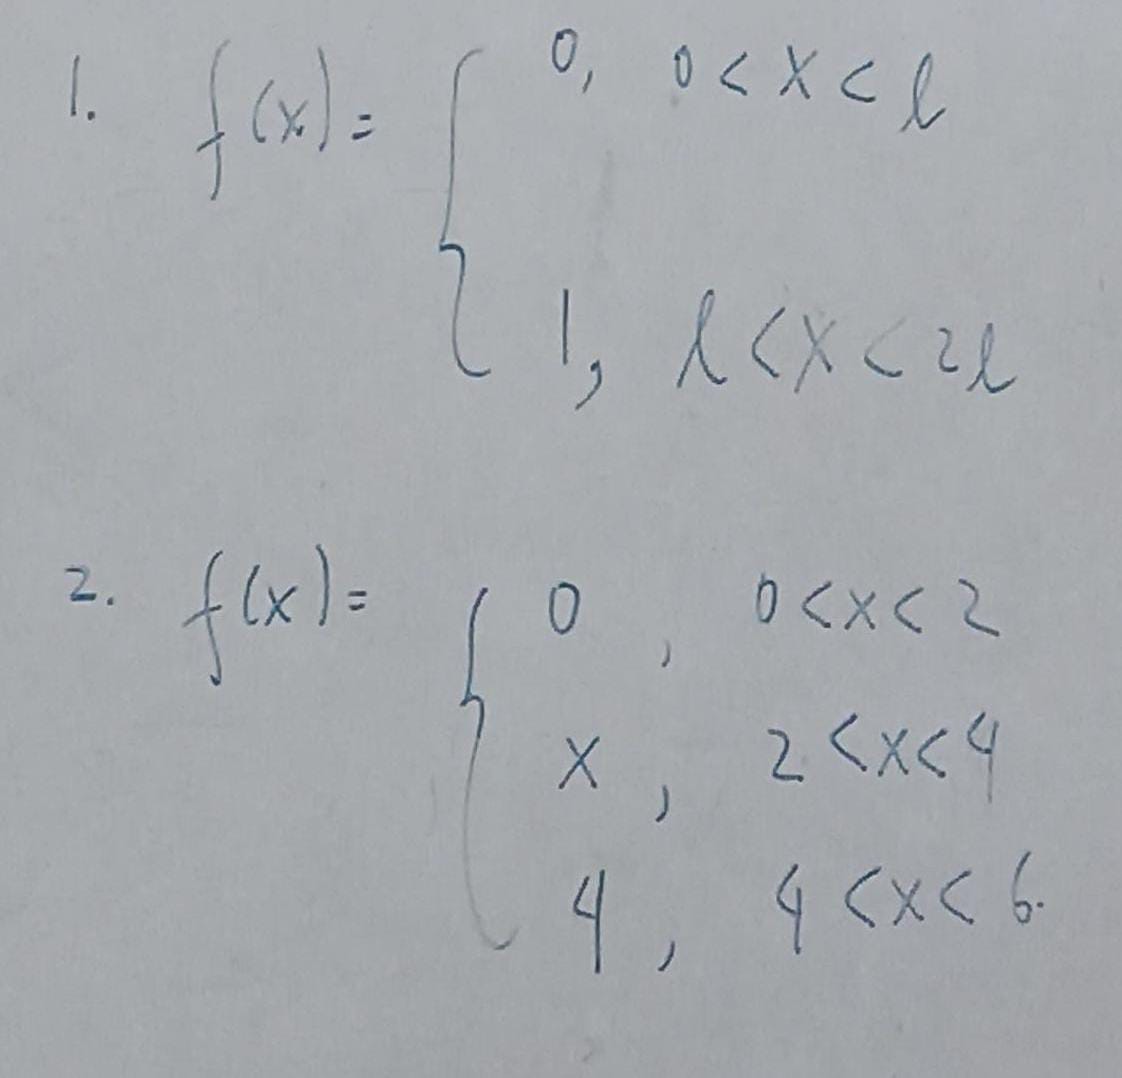 1. f(x) = { 0, 0 < x < l
1, l < x < 2l
2. f(x) = { 0, 0 < x < 2
x, 2 < x < 4
4, 4 < x < 6.